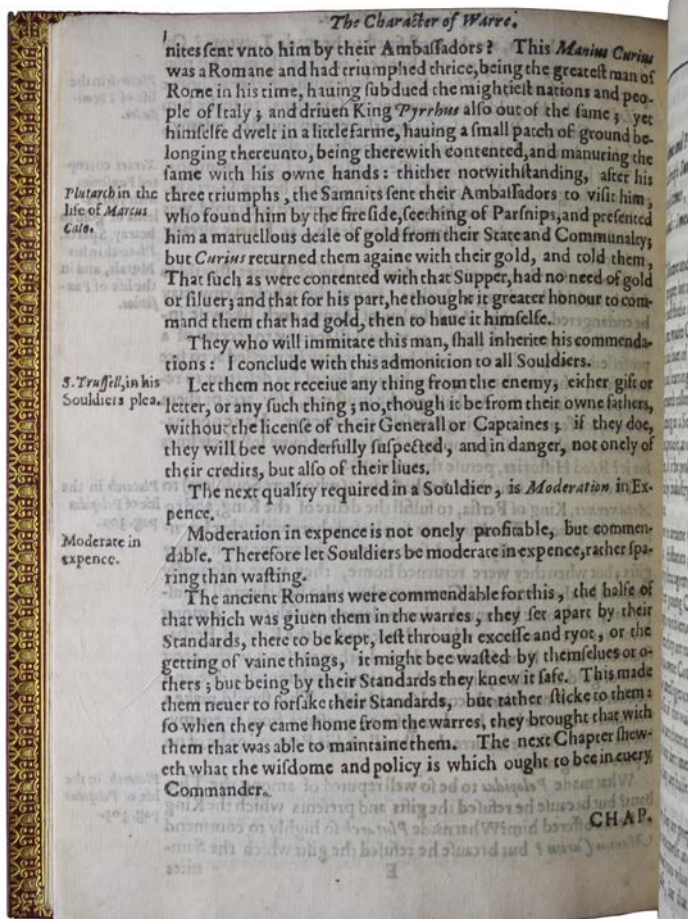 The Character of Warre.
nites ſent vnto him by their Ambaſſadors? This Manius Curius
was a Romane and had triumphed thrice, being the greateſt man of
Rome in his time, hauing ſubdued the mightieſt nations and peo-
ple of Italy; and driuen King Pyrrhus alſo out of the ſame; yet
himſelfe dwelt in a little farme, hauing a ſmall patch of ground be-
longing thereunto, being therewith contented, and manuring the
ſame with his owne hands: thither notwithſtanding, after his
Plutarch in the
life of Marcus
Cato.
three triumphs, the Samnits ſent their Ambaſſadors to viſit him,
who found him by the fire ſide, ſeething of Parſnips, and preſented
him a maruellous deale of gold from their State and Communalty;
but Curius returned them againe with their gold, and told them,
That ſuch as were contented with that Supper, had no need of gold
or ſiluer; and that for his part, he thought it greater honour to com-
mand them that had gold, then to haue it himſelfe.
They who will immitate this man, ſhall inherite his commenda-
tions: I conclude with this admonition to all Souldiers.
S. Truſſell, in his
Souldiers plea.
Let them not receiue any thing from the enemy, either gift or
letter, or any ſuch thing; no, though it be from their owne fathers,
without the licenſe of their Generall or Captaines; if they doe,
they will bee wonderfully ſuſpected, and in danger, not onely of
their credits, but alſo of their liues.
The next quality required in a Souldier, is Moderation in Ex-
pence.
Moderate in
expence.
Moderation in expence is not onely profitable, but commen-
dable. Therefore let Souldiers be moderate in expence, rather ſpa-
ring than waſting.
The ancient Romans were commendable for this, the halfe of
that which was giuen them in the warres, they ſet apart by their
Standards, there to be kept, left through exceſſe and ryot, or the
getting of vaine things, it might bee waſted by themſelues or o-
thers; but being by their Standards they knew it ſafe. This made
them neuer to forſake their Standards, but rather ſticke to them:
ſo when they came home from the warres, they brought that with
them that was able to maintaine them. The next Chapter ſhew-
eth what the wiſdome and policy is which ought to bee in euery
Commander.
CHAP.